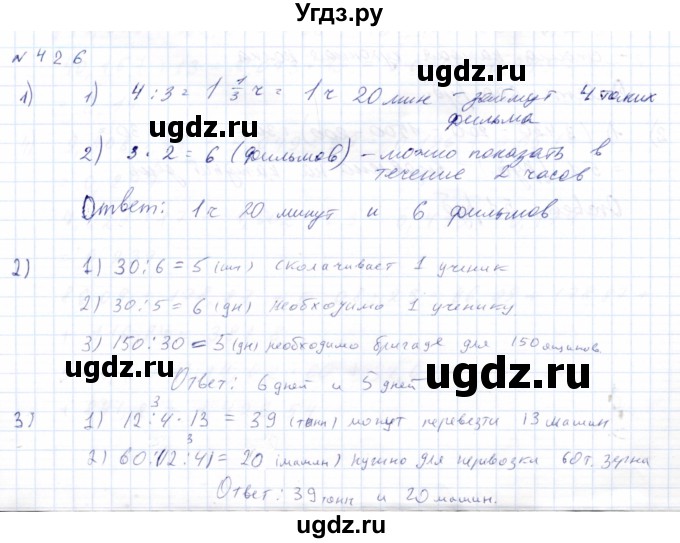 Угдз.ру
№ 426
1) 1) 4 : 3 = 1 1/3 ч = 1 ч 20 мин - займут 4 таких
фильма
ugdz.ru ugdz.ru
2) 3 · 2 = 6 (фильмов) - можно показать в
течение 2 часов
Ответ: 1 ч 20 минут и 6 фильмов
ugdz.ru ugdz.ru
2) 1) 30 : 6 = 5 (шт) сколачивает 1 ученик
2) 30 : 5 = 6 (дн) необходимо 1 ученику
3) 150 : 30 = 5 (дн) необходимо бригаде для 150 ящиков.
ugdz.ru ugdz.ru
Ответ: 6 дней и 5 дней
3
3) 1) 12 : 4 · 13 = 39 (тонн) могут перевезти 13 машин
3
2) 60 : (12 : 4) = 20 (машин) нужно для перевозки 60 т. зерна
ugdz.ru ugdz.ru
Ответ: 39 тонн и 20 машин.
ugdz.ru